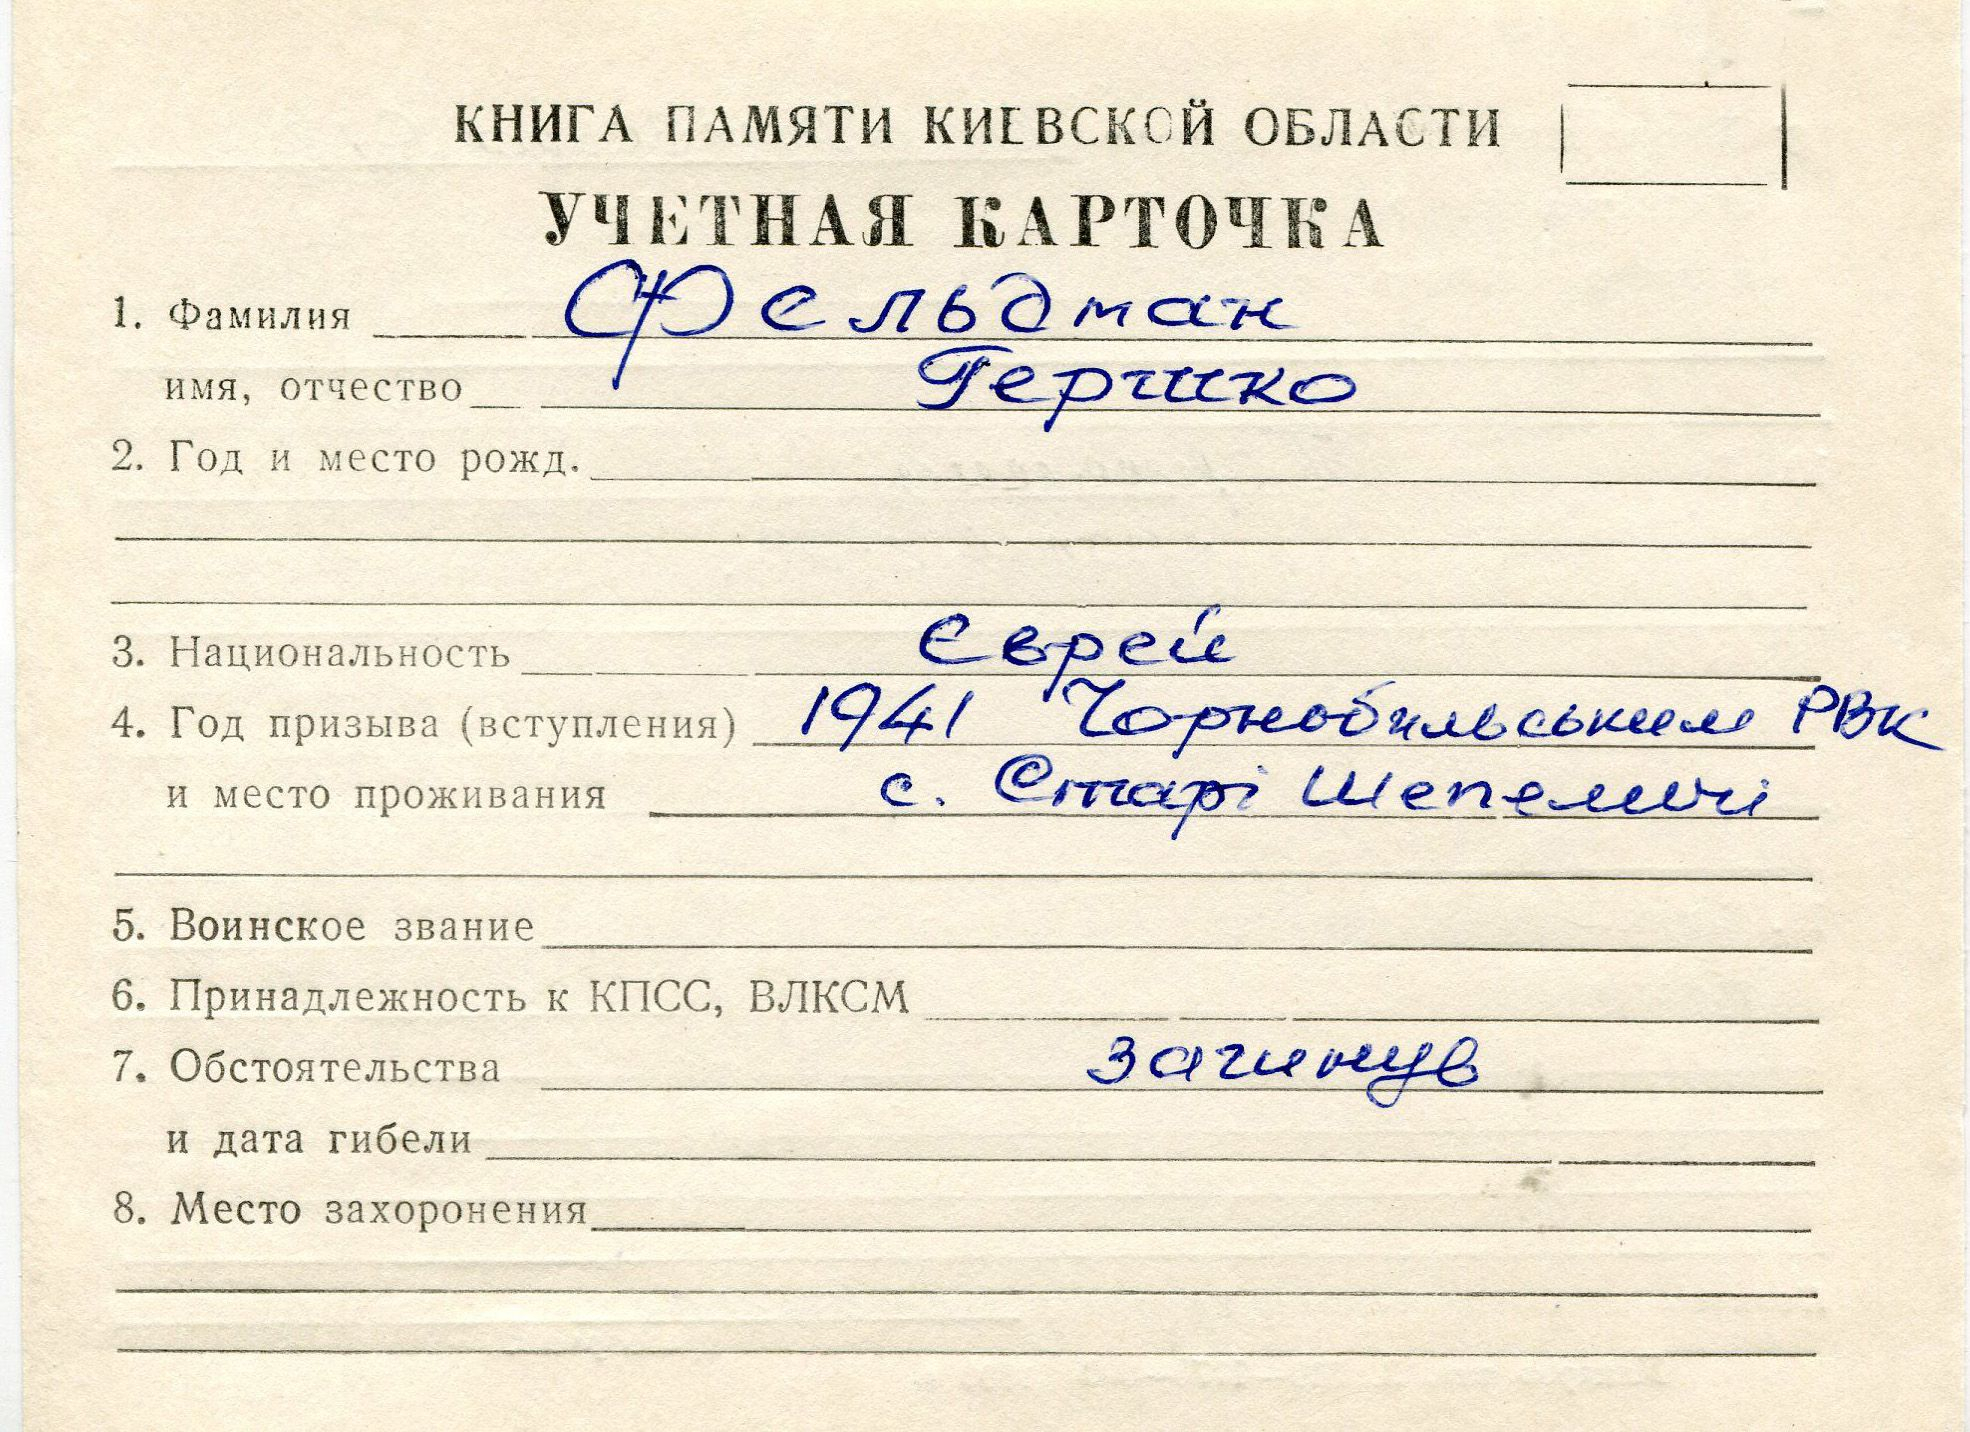 КНИГА ПАМЯТИ КИЕВСКОЙ ОБЛАСТИ
УЧЕТНАЯ КАРТОЧКА
1. Фамилия Фельдман
имя, отчество Гершко
2. Год и место рожд.
3. Национальность Єврей
4. Год призыва (вступления) 1941 Чорнобильським РВК
и место проживания с. Старі Шепеличі
5. Воинское звание
6. Принадлежность к КПСС, ВЛКСМ
7. Обстоятельства загинув
и дата гибели
8. Место захоронения